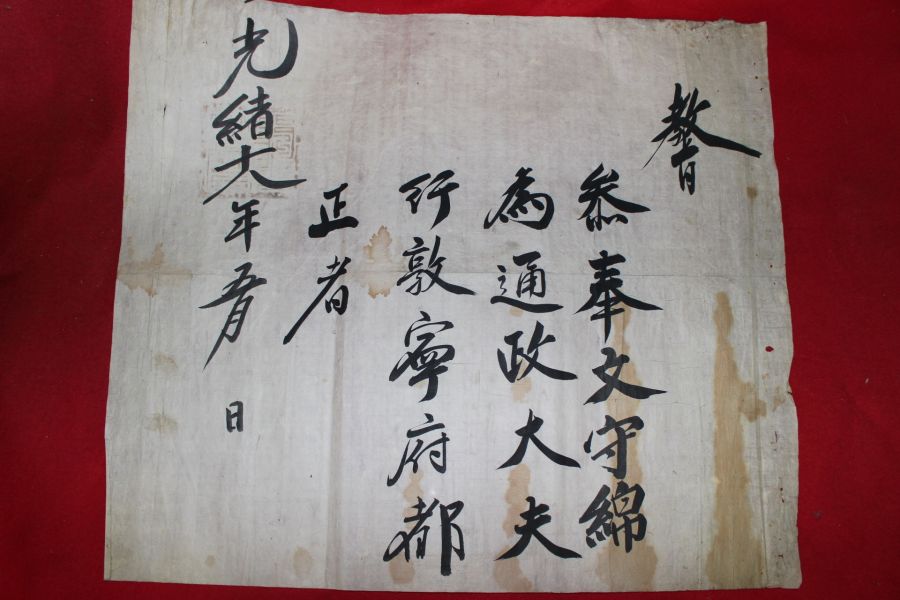 敎旨
叅奉文守綿
為通政大夫
行敦寧府都
正者
光緒六年五月 日